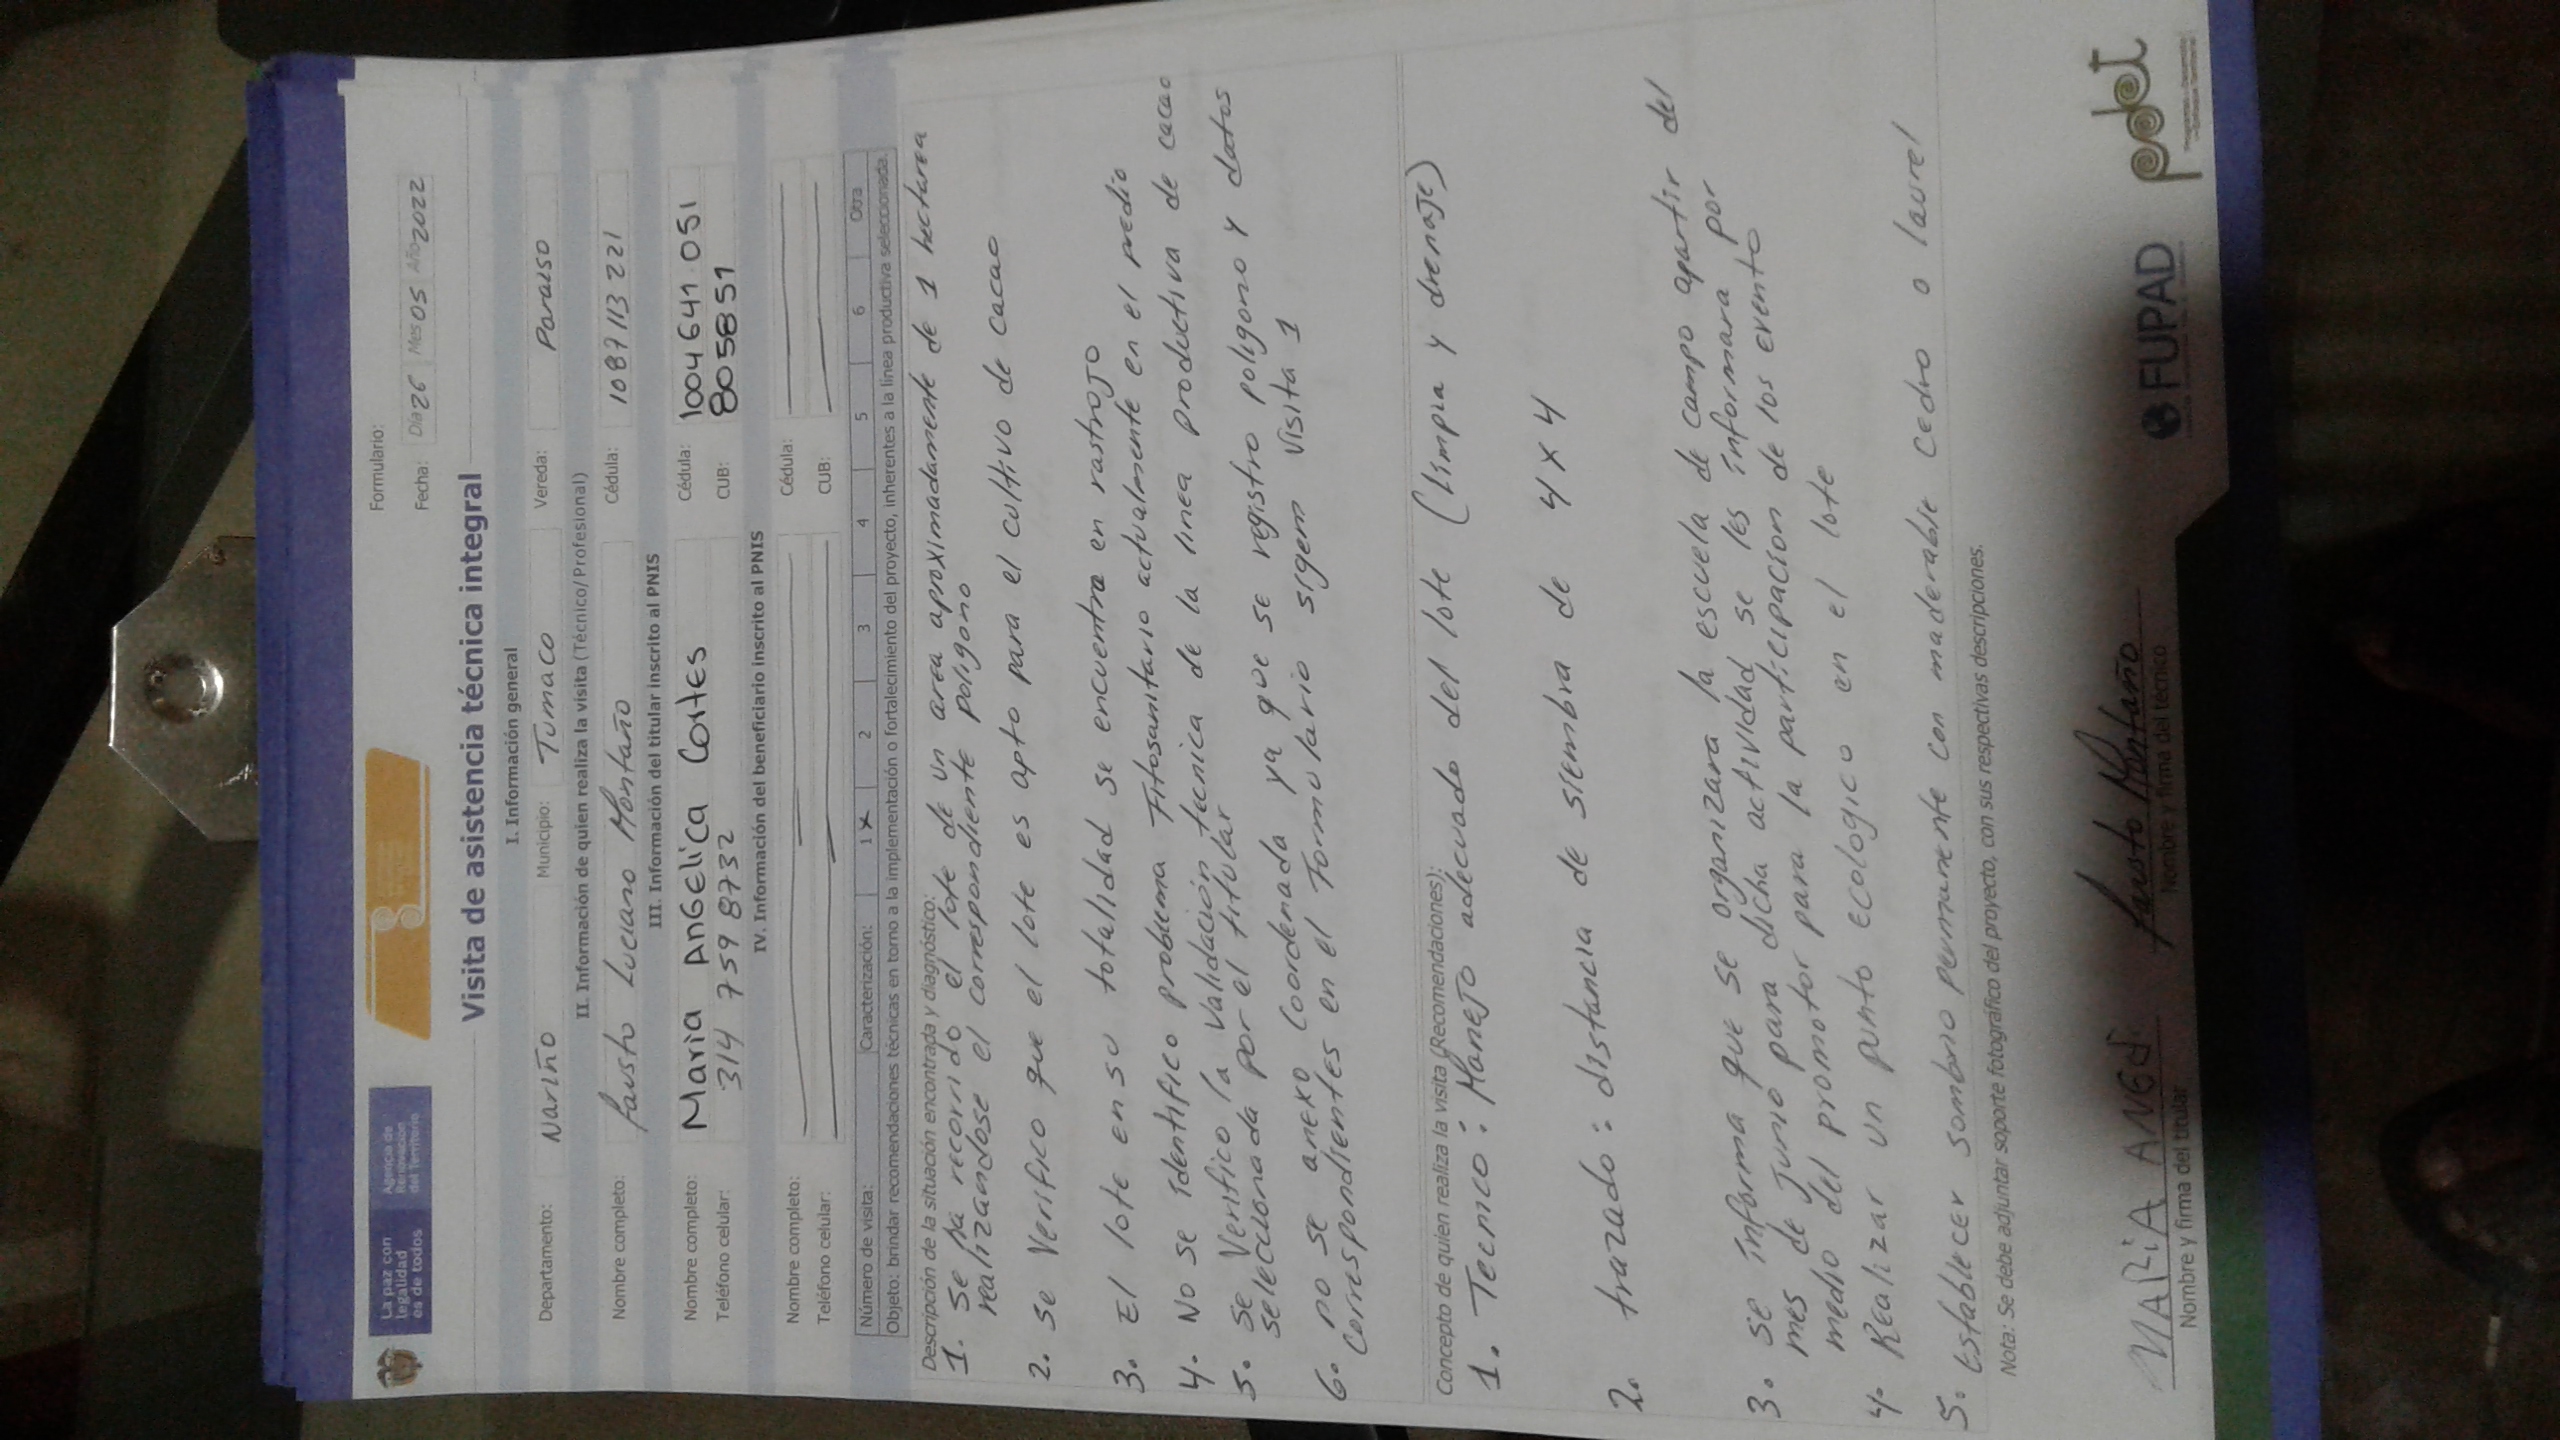 La paz con
legalidad
es de todos
Agencia de
Renovación
del Territorio
Formulario:
Fecha: Dia 26 Mes 05 Año 2022
Visita de asistencia técnica integral
I. Información general
Departamento: Nariño Municipio: Tumaco Vereda: Paraiso
II. Información de quien realiza la visita (Técnico/Profesional)
Nombre completo: Fausto Luciano Montaño Cédula: 1087113221
III. Información del titular inscrito al PNIS
Nombre completo: Maria Angelica Cortes Cédula: 1004641051
Teléfono celular: 314 759 8732 CUB: 8058851
IV. Información del beneficiario inscrito al PNIS
Nombre completo: Cédula:
Teléfono celular: CUB:
Número de visita: Caracterización: 1 x 2 3 4 5 6 Otra
Objeto: brindar recomendaciones técnicas en torno a la implementación o fortalecimiento del proyecto, inherentes a la línea productiva seleccionada.
Descripción de la situación encontrada y diagnóstico:
1. Se ha recorrido el lote de un area aproximadamente de 1 hectarea
realizandose el correspondiente poligono
2. se Verifico que el lote es apto para el cultivo de cacao
3. El lote en su totalidad se encuentra en rastrojo
4. No se identifico problema Fitosanitario actualmente en el predio
5. se Verifico la validación técnica de la linea productiva de cacao
seleccionada por el titular
6. no se anexo Coordenada ya que se registro poligono y datos
correspondientes en el Formulario sigem visita 1
Concepto de quien realiza la visita (Recomendaciones):
1. Tecnico: Manejo adecuado del lote (limpia y drenaje)
2. trazado: distancia de siembra de 4x4
3. se informa que se organizara la escuela de campo apartir del
mes de Junio para dicha actividad se les informara por
medio del promotor para la participacion de los evento
4. Realizar un punto ecologico en el lote
5. establecer sombrio permanente con maderable cedro o laurel
Nota: Se debe adjuntar soporte fotográfico del proyecto, con sus respectivas descripciones.
MARIA ANGEL
Nombre y firma del titular
Fausto Montaño
Nombre y firma del técnico
FUPAD
pdet